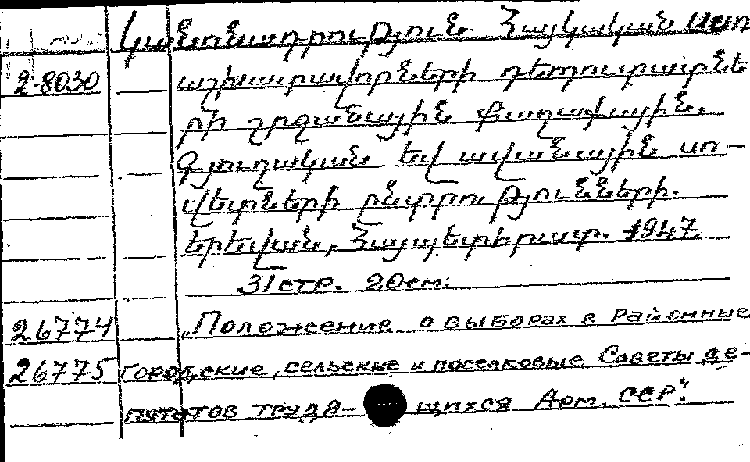 Կանոնադրություն Հայկական ՍՍՌ
2-8030 աշխատավորների դեպուտատնե
րի շրջանային քաղաքային,
գյուղական եվ ավանային սո-
վետների ընտրությունների.
Երեվան, Հայպետհրատ. 1947
31 стр. 20 см.
26774 „Положение о выборах в Районные
26775 городские, сельские и поселковые Советы де-
путатов трудя- щихся Арм. ССР".